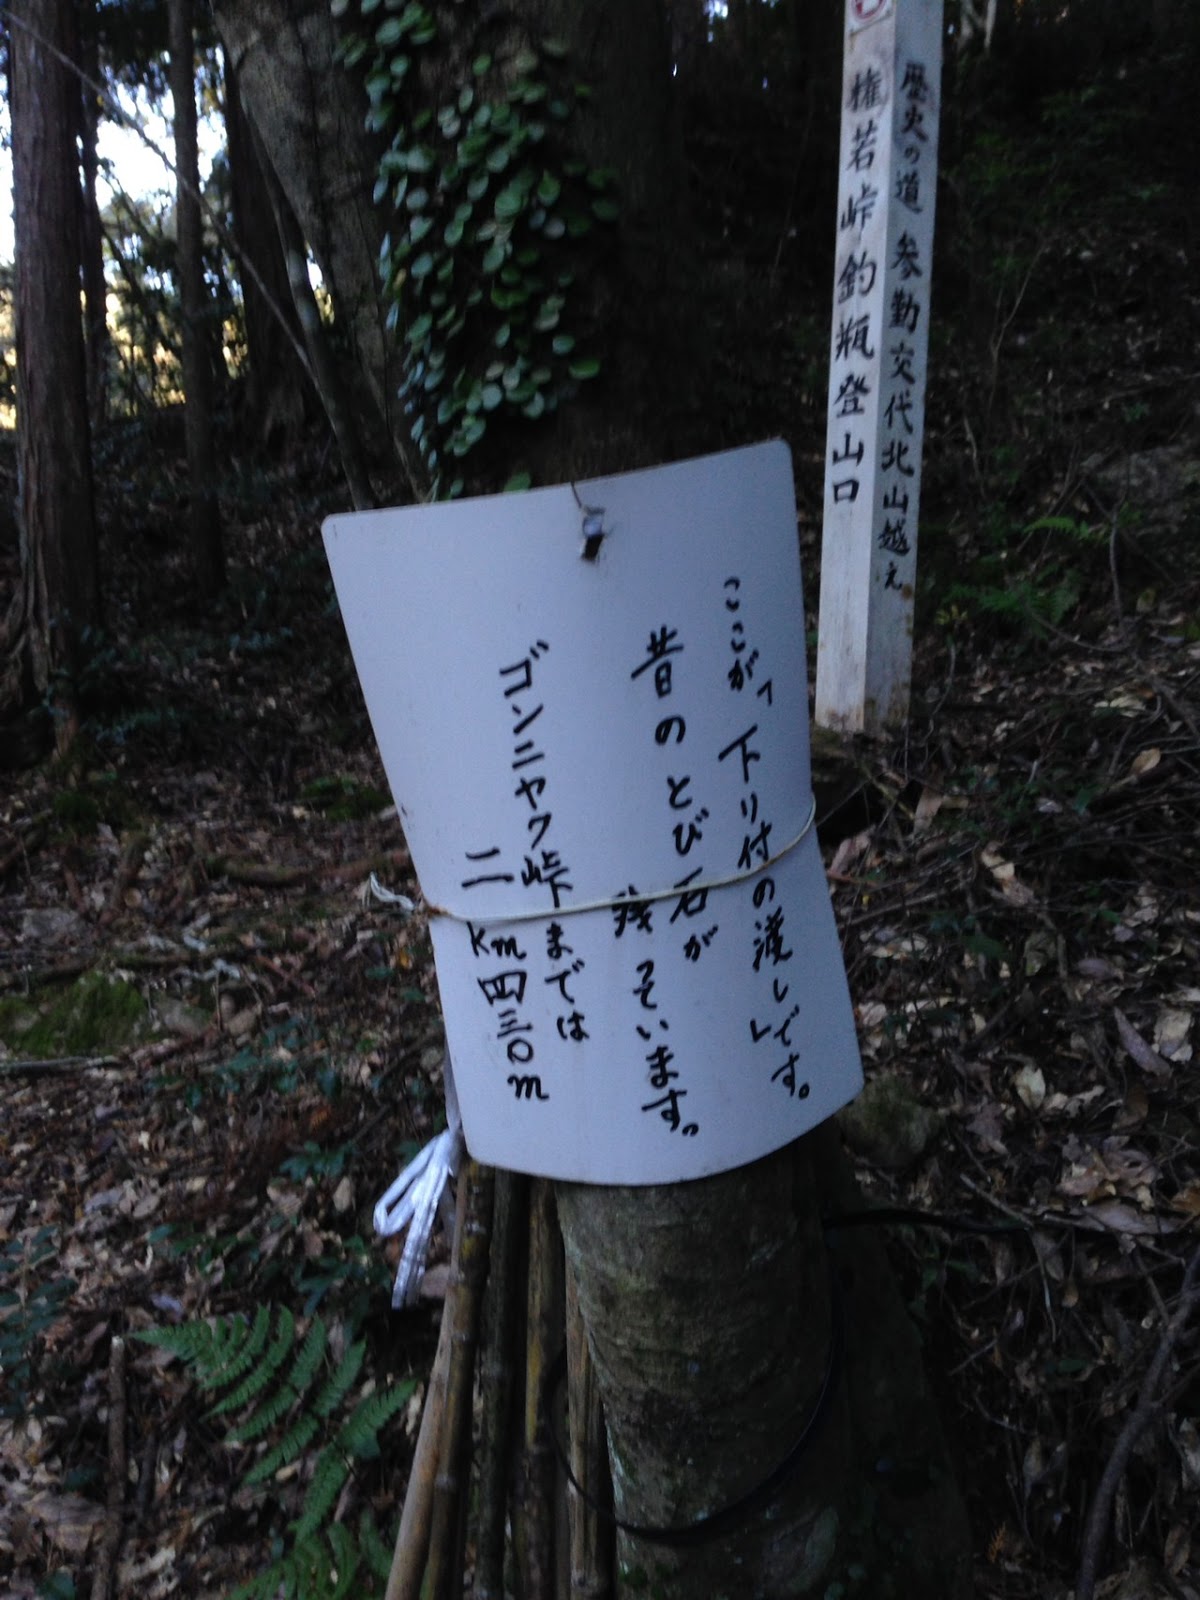 歴史の道 参勤交代北山越え
権若峠・釣瓶登山口
ここが「下り付の渡し」です。
昔のとび石が
残っています。
ゴンニャク峠までは
二km四三〇m